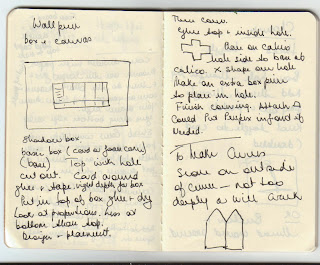 Wall piece
box & canvas
Shadow box
basic box (card or foam core)
(base) Top with hole
cut out. Card around
glue & tape. right depth for box
Put in top of box glue & dry
Look at proportions. Less at
bottom than top.
Design & placement.
Then cover.
Glue top & inside hole.
Then on calico
hole side to back of
calico. X shape on hole
Make an extra box piece
to place in hole.
Finish covering. Attach
Could Put Paper in front if
needed.
To Make Curves
Score on outside
of curve – not too
deeply & will work